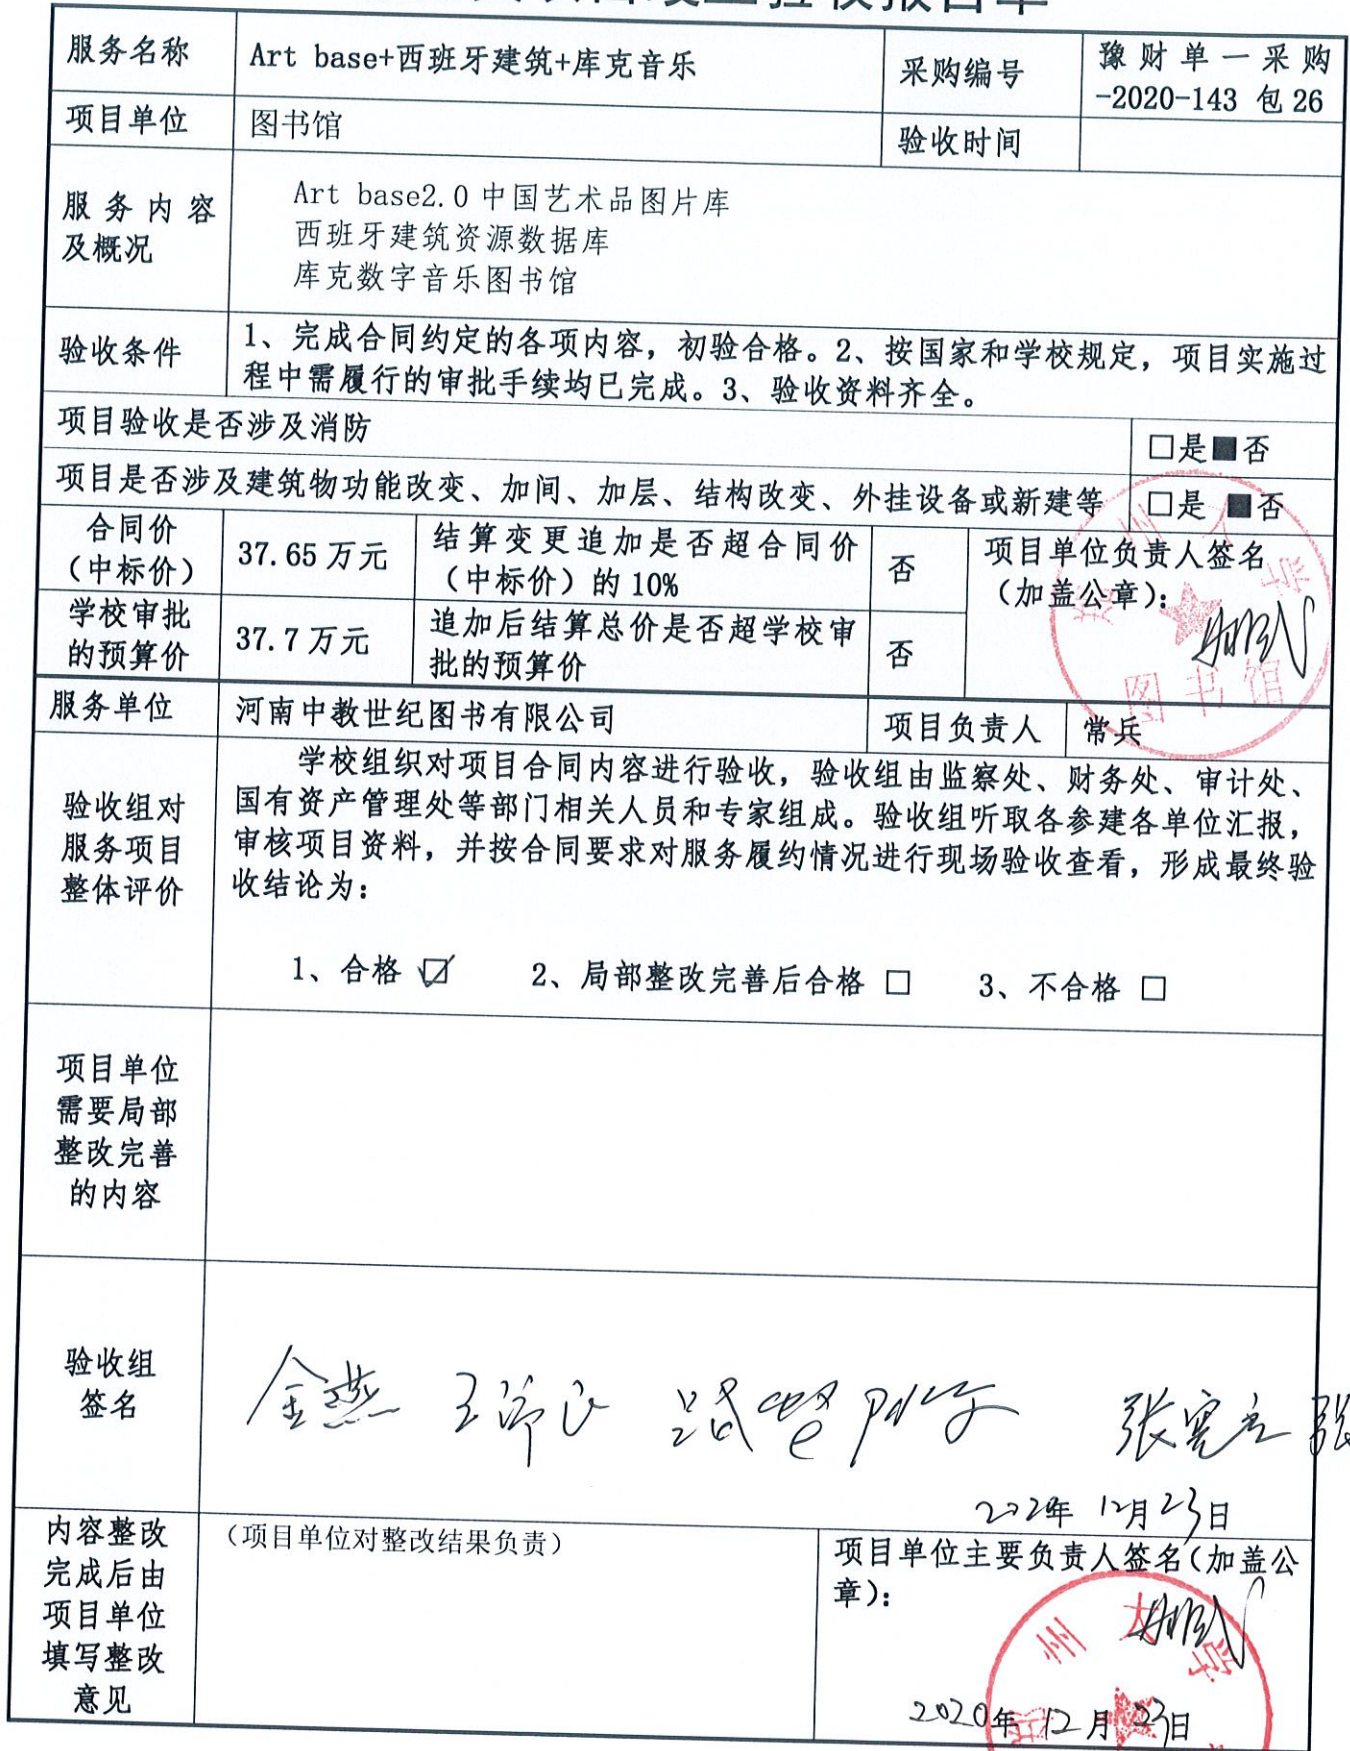 验收报告单
服务名称
Art base+西班牙建筑+库克音乐
采购编号
豫财单一采购
-2020-143 包 26
项目单位
图书馆
验收时间
服务内容
及概况
Art base2.0 中国艺术品图片库
西班牙建筑资源数据库
库克数字音乐图书馆
验收条件
1、完成合同约定的各项内容，初验合格。2、按国家和学校规定，项目实施过
程中需履行的审批手续均已完成。3、验收资料齐全。
项目验收是否涉及消防
□是■否
项目是否涉及建筑物功能改变、加间、加层、结构改变、外挂设备或新建等
□是 ■否
合同价
（中标价）
37.65 万元
结算变更追加是否超合同价
（中标价）的 10%
否
项目单位负责人签名
（加盖公章）：
学校审批
的预算价
37.7 万元
追加后结算总价是否超学校审
批的预算价
否
州大学
图书馆
服务单位
河南中教世纪图书有限公司
项目负责人
常兵
验收组对
服务项目
整体评价
学校组织对项目合同内容进行验收，验收组由监察处、财务处、审计处、
国有资产管理处等部门相关人员和专家组成。验收组听取各参建各单位汇报，
审核项目资料，并按合同要求对服务履约情况进行现场验收查看，形成最终验
收结论为：
1、合格 ☑ 2、局部整改完善后合格 □ 3、不合格 □
项目单位
需要局部
整改完善
的内容
验收组
签名
金燕
2020年 12月23日
内容整改
完成后由
项目单位
填写整改
意见
（项目单位对整改结果负责）
项目单位主要负责人签名（加盖公
章）：
州大学
2020年 12月 23日